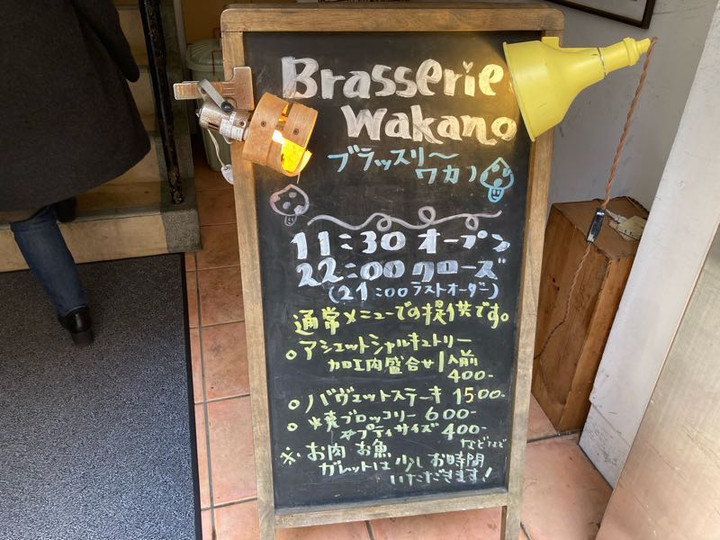 Brasserie
Wakano
ブラッスリ〜
ワカノ
11:30 オープン
22:00 クローズ
(21:00 ラストオーダー)
通常メニューでの提供です。
○アシェットシャルキュトリー
加工肉盛合せ 1人前
400-
○バヴェットステーキ 1500-
○焼ブロッコリー 600-
プティサイズ 400-
などなど
※お肉 お魚
ガレットは 少しお時間
いただきます!